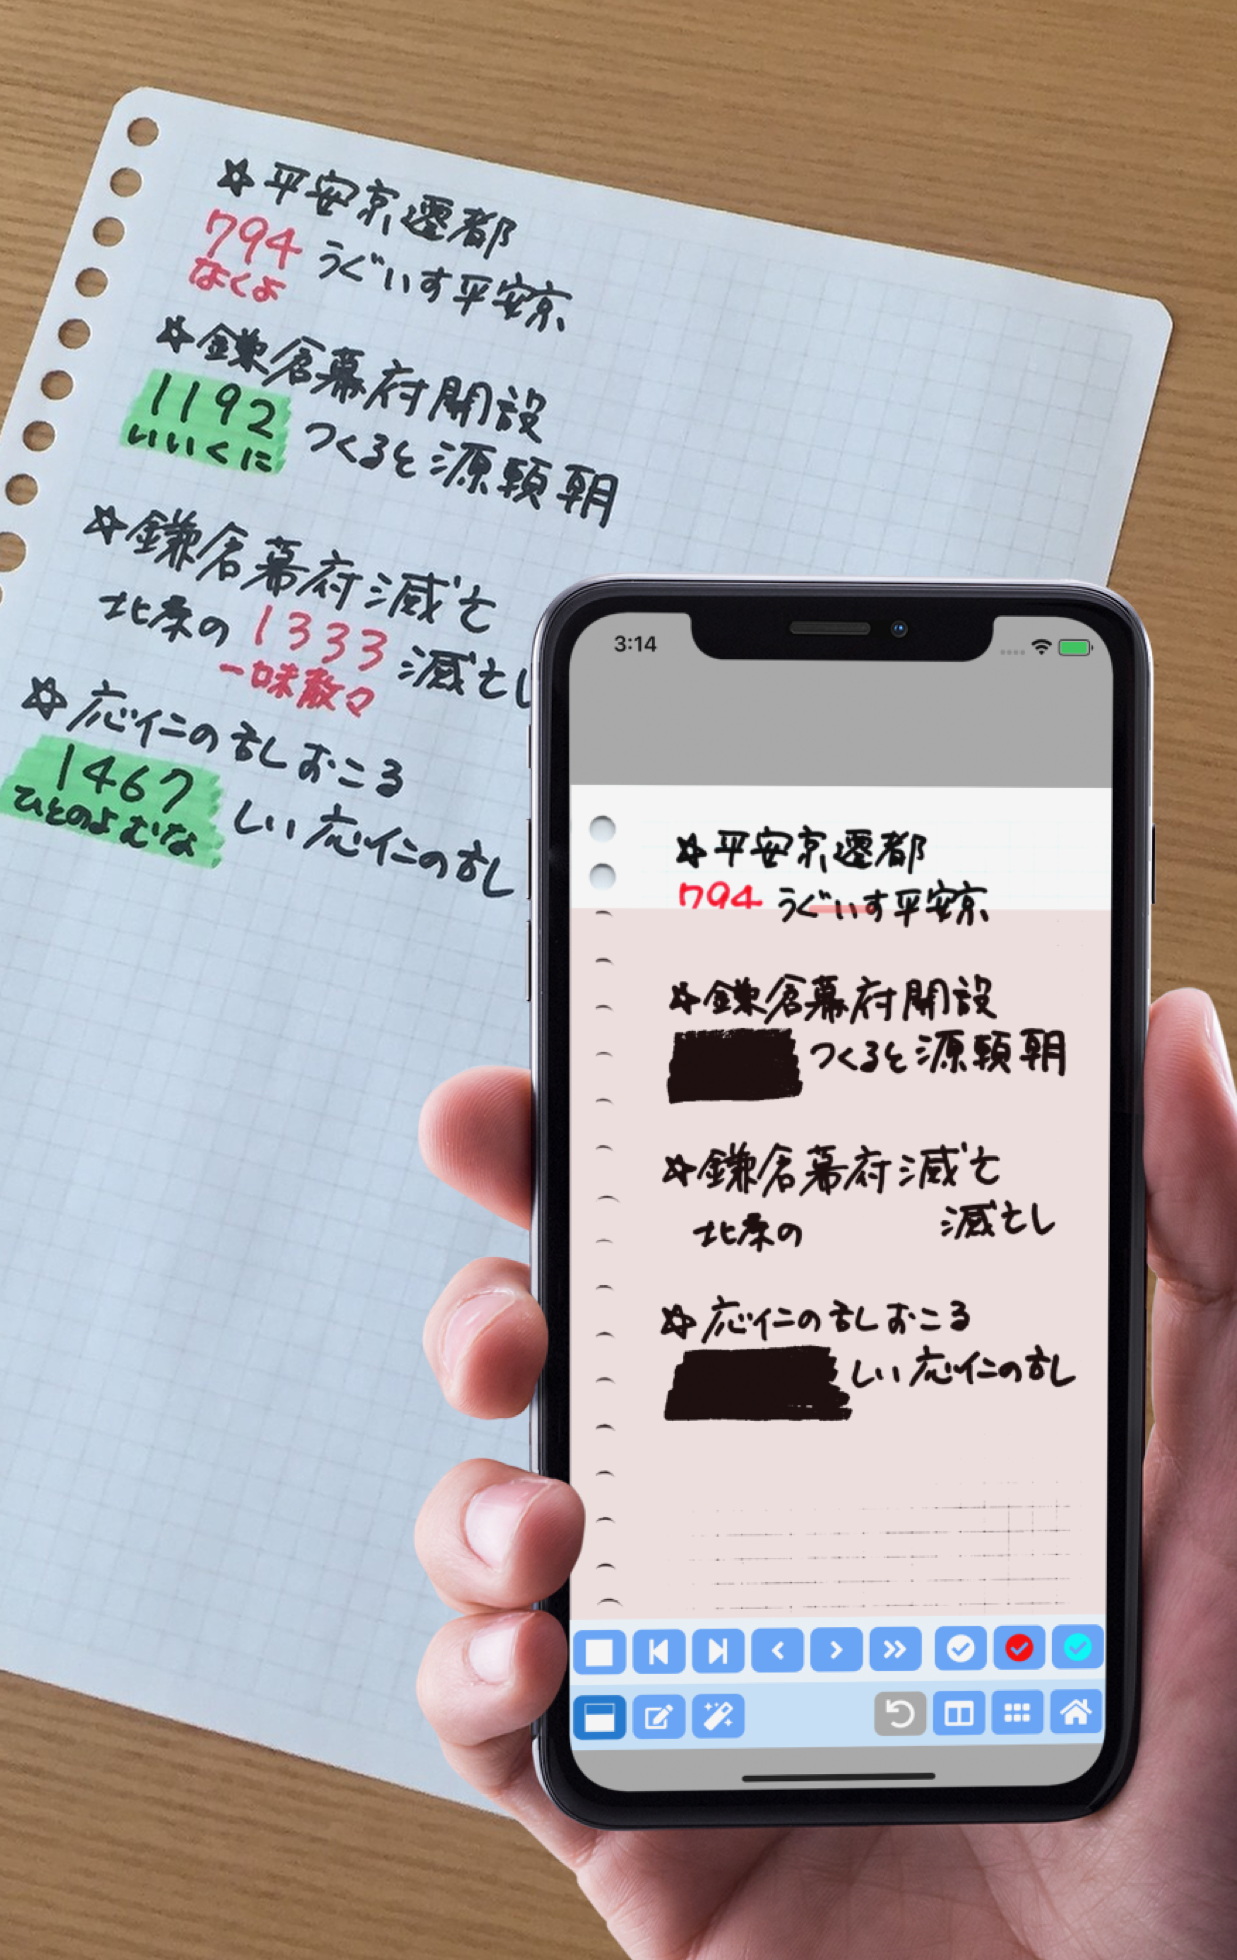 ☆平安京遷都
794 うぐいす平安京
なくよ
☆鎌倉幕府開設
1192 つくると源頼朝
いいくに
☆鎌倉幕府滅亡
北条の 1333 滅亡し
一味散々
☆応仁の乱おこる
1467 しい応仁の乱
ひとのよむな
3:14
☆平安京遷都
794 うぐいす平安京
☆鎌倉幕府開設
つくると源頼朝
☆鎌倉幕府滅亡
北条の 滅亡し
☆応仁の乱おこる
しい応仁の乱